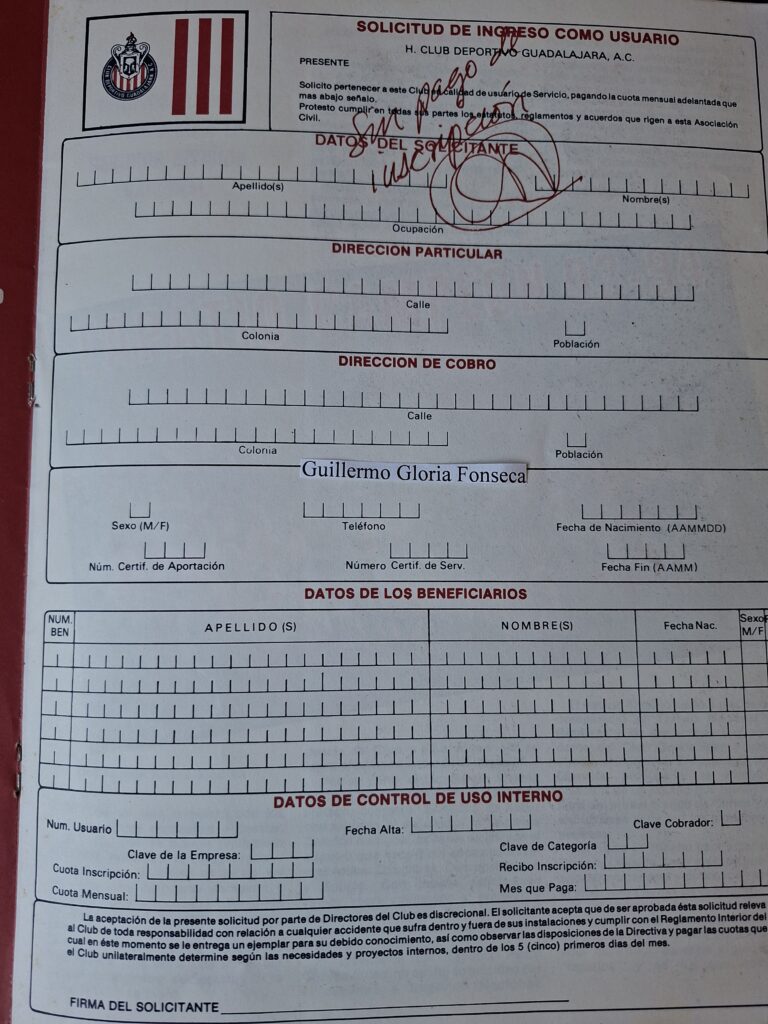 SOLICITUD DE INGRESO COMO USUARIO
H. CLUB DEPORTIVO GUADALAJARA, A.C.
PRESENTE
Solicito pertenecer a este Club en calidad de usuario de Servicio, pagando la cuota mensual adelantada que
mas abajo señalo.
Protesto cumplir en todas sus partes los estatutos, reglamentos y acuerdos que rigen a esta Asociación
Civil.
Sin pago de
inscripción
DATOS DEL SOLICITANTE
Apellido(s)
Nombre(s)
Ocupación
DIRECCION PARTICULAR
Calle
Colonia
Población
DIRECCION DE COBRO
Calle
Colonia
Población
Guillermo Gloria Fonseca
Sexo (M/F)
Teléfono
Fecha de Nacimiento (AAMMDD)
Núm. Certif. de Aportación
Número Certif. de Serv.
Fecha Fin (AAMM)
DATOS DE LOS BENEFICIARIOS
NUM. BEN
APELLIDO (S)
NOMBRE(S)
Fecha Nac.
Sexo M/F
DATOS DE CONTROL DE USO INTERNO
Num. Usuario
Fecha Alta:
Clave Cobrador:
Clave de la Empresa:
Clave de Categoría
Cuota Inscripción:
Recibo Inscripción:
Cuota Mensual:
Mes que Paga:
La aceptación de la presente solicitud por parte de Directores del Club es discrecional. El solicitante acepta que de ser aprobada ésta solicitud releva
al Club de toda responsabilidad con relación a cualquier accidente que sufra dentro y fuera de sus instalaciones y cumplir con el Reglamento Interior del
cual en éste momento se le entrega un ejemplar para su debido conocimiento, así como observar las disposiciones de la Directiva y pagar las cuotas que
el Club unilateralmente determine según las necesidades y proyectos internos, dentro de los 5 (cinco) primeros dias del mes.
FIRMA DEL SOLICITANTE